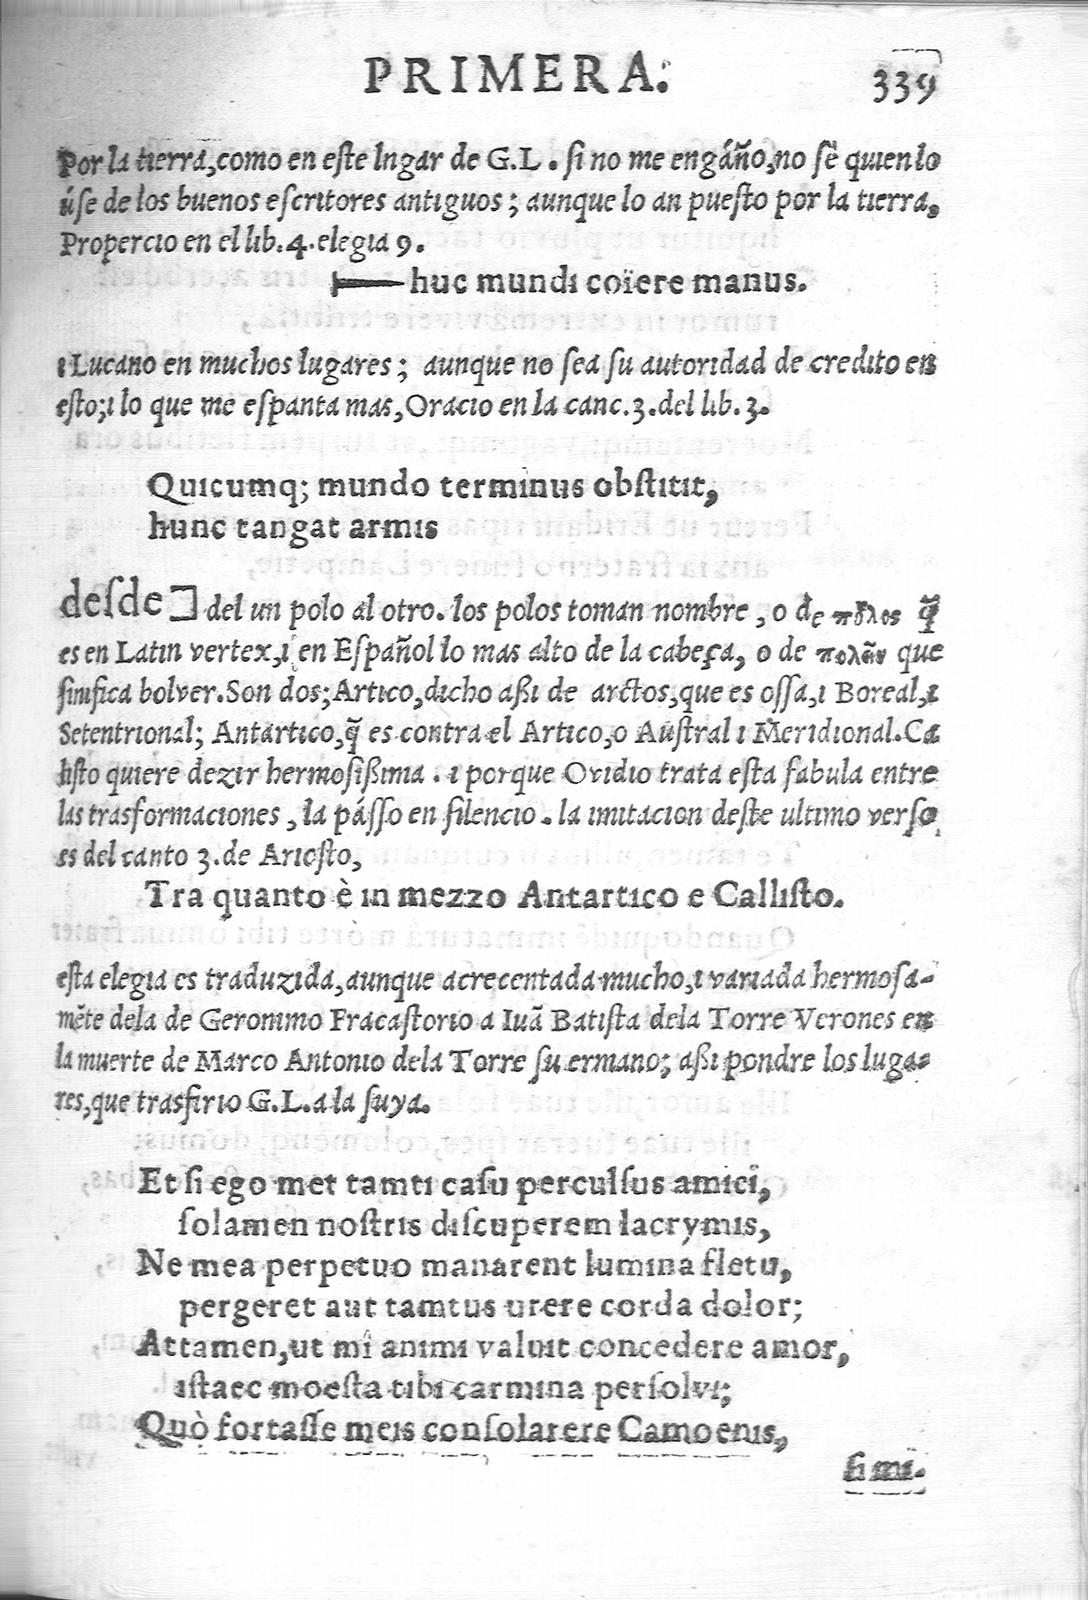 PRIMERA. 339
Por la tierra, como en eſte lngar de G.L. ſi no me engáño, no sè quien lo
úſe de los buenos eſcritores antiguos; aunque lo an pueſto por la tierra,
Propercio en el lib.4.elegıa 9.
huc mundi coïere manus.
ı Lucano en muchos lugares; aunque no ſea ſu autorıdad de credıto en
eſto; ı lo que me eſpanta mas, Oracıo en la canc.3.del lıb.3.
Quıcumq; mundo termınus obſtıtıt,
hunc tangat armıs
deſde ⊐ del un polo al otro. los polos toman nombre, o de πόλος q̃
es en Latın vertex, ı en Eſpañol lo mas alto de la cabeça, o de πολεῖν que
ſınıfica bolver. Son dos; Artıco, dıcho aßı de arctos, que es oſſa, ı Boreal, ı
Setentrıonal; Antartıco, q̃ es contra el Artıco, o Auſtral ı Merıdıonal. Ca
lıſto quıere dezır hermoſıßıma. ı porque Ovıdıo trata eſta fabula entre
las trasformacıones, la páſſo en ſılencıo. la ımıtacıon deſte ultımo verſo
es del canto 3. de Arıoſto,
Tra quanto è ın mezzo Antartıco e Callıſto.
eſta elegıa es traduzıda, aunque acrecentada mucho, ı varıada hermoſa-
mẽte dela de Geronımo Fracaſtorıo a Iuã Batıſta dela Torre Verones en
la muerte de Marco Antonıo dela Torre ſu ermano; aßı pondre los luga-
res, que trasfırıo G.L. a la ſuya.
Et ſı ego met tamtı caſu perculſus amıcı,
ſolamen noſtrıs dıſcuperem lacrymıs,
Ne mea perpetuo manarent lumına fletu,
pergeret aut tamtus urere corda dolor;
Attamen, ut mî anımı valuıt concedere amor,
ıſtaec moeſta tıbı carmına perſolvı;
Quò fortaſſe meıs conſolarere Camoenıs,
ſı mı.